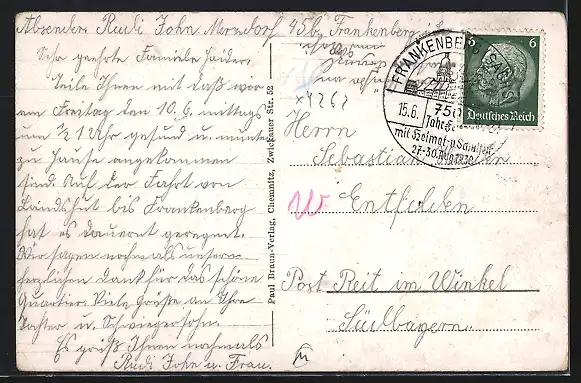 Absender Rudi John Merzdorf 45b, Frankenberg i.
Sehr geehrte Familie
Teile Ihnen mit daß wir
am Freitag den 10.6. mittags
um ½1 Uhr gesund u. munter
zu Hause angekommen
sind. Auf der Fahrt von
Landshut bis Frankenberg
hat es dauernt geregnet.
Wir sagen nochmals unsern
herzlichen Dank für das schöne
Quartier. Viele Größe an Ihre
Tochter u. Schwiegersohn.
Es grüß Ihnen nochmals
Rudi John u. Frau.
Paul Braun-Verlag, Chemnitz, Zwickauer Str. 52
FRANKENBERG SACHS
15.6.
750
Jahrfeier
mit Heimat- u Schulfest
27.-30. Aug. 1938
6 6
Deutsches Reich
Herrn
Sebastian
Entfelden
Post Reit im Winkel
Südbayern